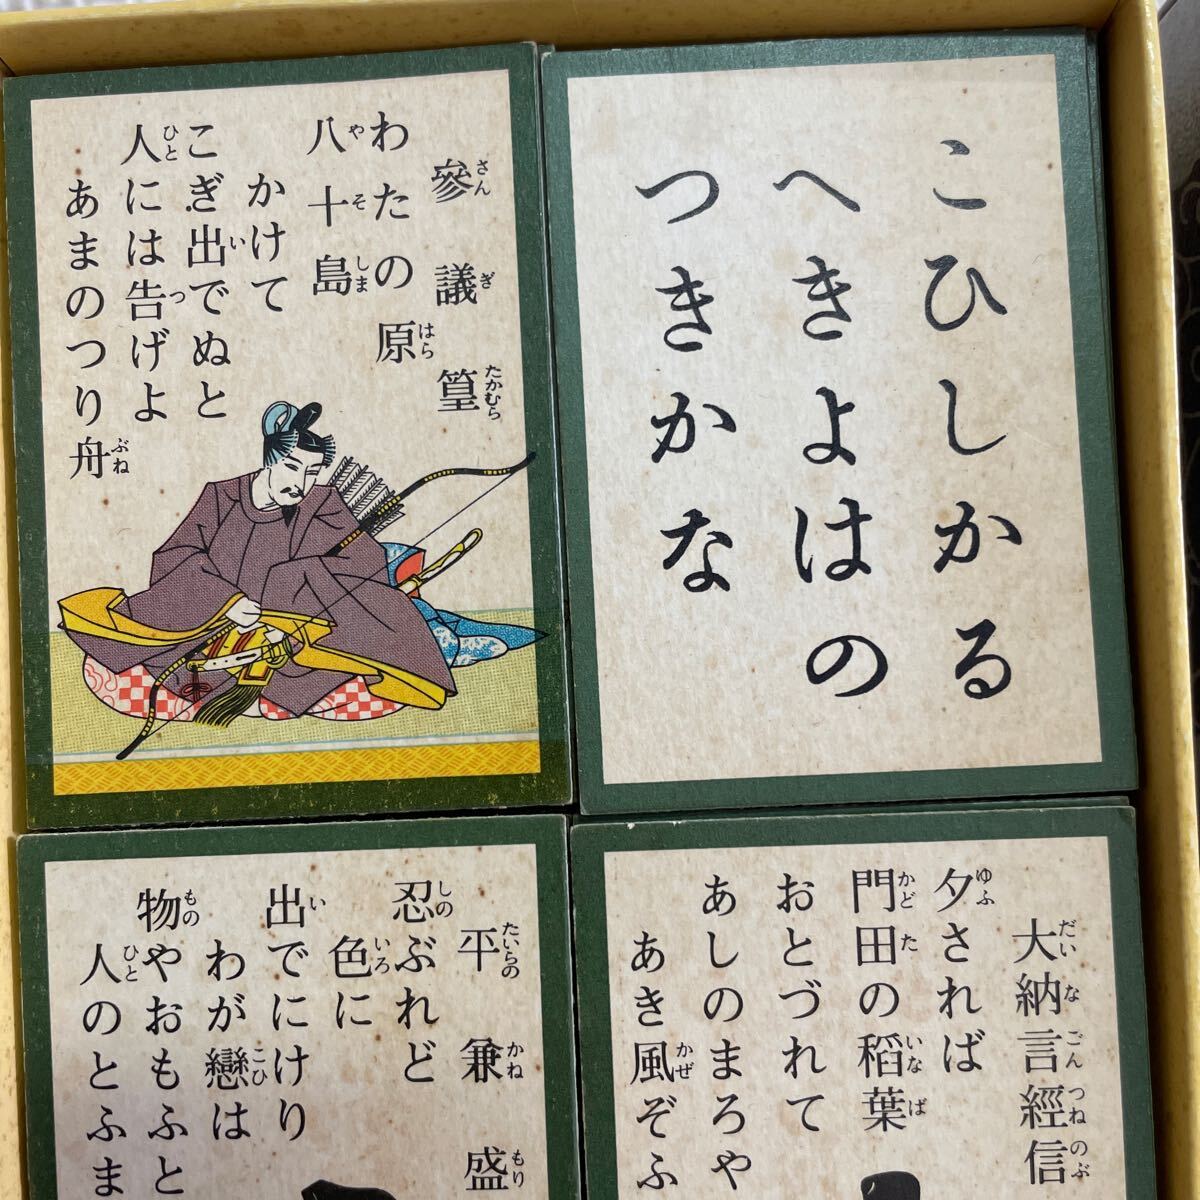 參議篁
わたの原
八十島
かけて
こぎ出でぬと
人には告げよ
あまのつり舟
こひしかる
へきよはの
つきかな
平兼盛
忍ぶれど
色に
出でにけり
わが戀は
物やおもふと
人のとふま
大納言經信
夕されば
門田の稻葉
おとづれて
あしのまろや
あき風ぞふ